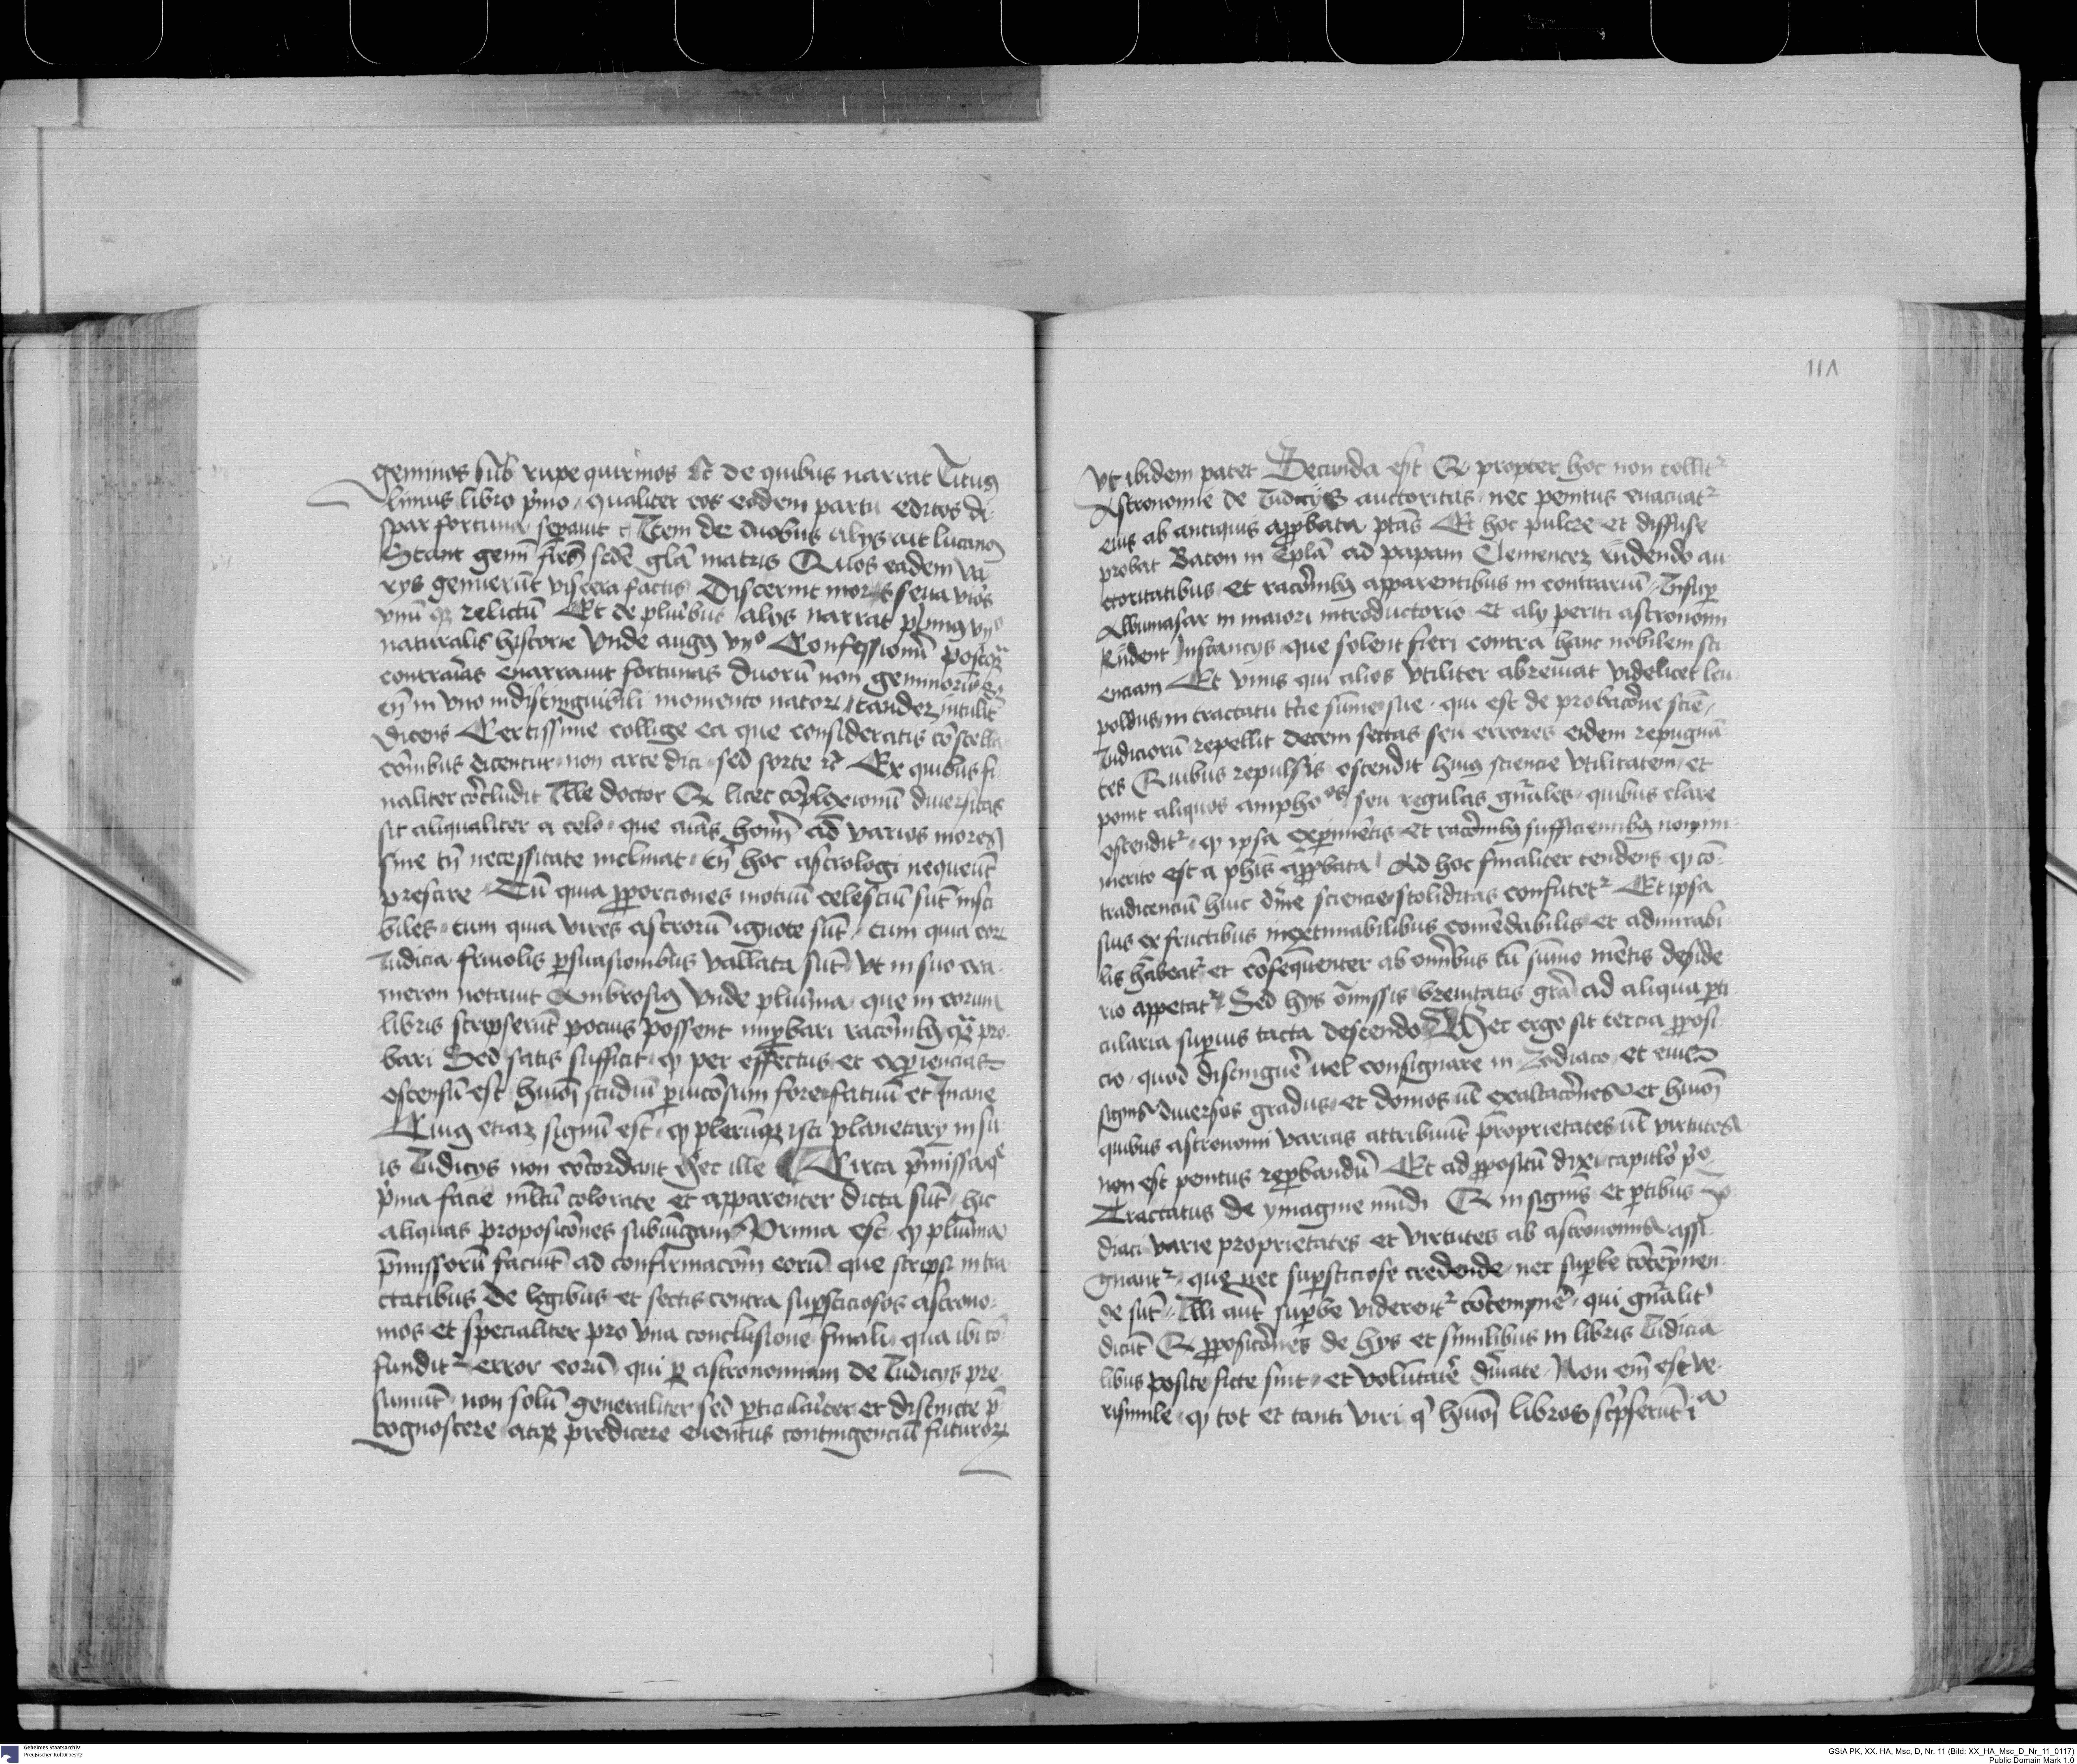 geminos sub rupe quirinos ꝛc̄ de quibus narrat Titus
liuius libro p̄mo qualiter eos eodem partu editos di
spar fortuna sepauit Item de duobus alijs ait lucan9
Stant gem̄ fr̄es sed̄e gl̄a matris Quos eadem va
rijs genuerūt viscera factis Discerint mors seua viros
vnū qꝫ relictū Et de plurībus alijs narrat plinius vijº
naturalis historie Vnde aug9 vijº Confessionū postqꝫ
contrarias enarrauit fortunas duorū non geminorū
en̄ in vno indistinguibili momento natorꝝ tandeꝫ intulit
dicens Certissime collige ea que consideratis cōstella
cōnibus dicentur non arte dici sed sorte ꝛc̄ Ex quibus fi
naliter cōcludit Ille doctor Qꝫ licet cōplexionū diuersitas
sit aliqualiter a celo que aīas hom̄ ad varios mores
sine tn̄ necessitate inclinat En̄ hoc astrologi nequeūt
prestare Tū quia ꝓporciones motuū celestiū sūt insci
biles tum quia vires astrorū ignote sūt tum quia eoꝝ
Iudicia friuolis ꝑsuasionibus vallata sūt vt in suo exa
meron notauit Ambrosi9 Vnde plurīma que in eorum
libris scripserūt pocius possent impbari racōnibꝫ qꝫ pro
bari Sed satis sufficit ꝙ per effectus et expiencias
ostensū est huiōi studiū pnicōsum fore fatuū et Inane
Cuiꝰ etiaꝫ signū est ꝙ plerūqꝫ isti planetarij in su
is Iudicijs non cōcordant hec ille Circa p̄missa qe
p̄ma facie ml̄tū colorate et apparenter dicta sūt hic
aliquas proposicōnes subiūgam Prima est ꝙ plurīma
p̄missorū faciūt ad confirmacōm eorū que scripsi in tra
ctatibus de legibus et sectis contra supsticiosos astrono
mos et specialiter pro vna conclusione finali qua ibi cō
fundit² error eorū qui ꝑ astronomiam de Iudicijs pre
sumūt non solū generaliter sed ꝑticularīter et distincte p̄
cognoscere atqꝫ predicere euentus contingenciū futuroꝝ
111
vt ibidem patet Secunda est Qꝫ propter hoc non tollit²
Astronomie de Iudicijs auctoritas nec penitus euacuat²
eius ab antiquis approbata ptās Et hoc pulcre et diffuse
probat Bacon in Epl̄a ad papam Clementeꝫ rn̄dendo au
ctoritatibus et racōnibꝫ apparentibus in contrariū Insuꝑ
Albumasar in maiori introductorio et alij periti astronomi
Rn̄dent Instancijs que solent fieri contra hanc nobilem sci
enciam Et vnus qui alios vtiliter abreuiat videlicet leu
poldus in tractatu t̄cie sūme sue qui est de probacōne scīe
Iudiciorū repellit decem sectas seu errores eidem repugnā
tes Quibus repulsis ostendit hui9 sciencie vtilitatem et
ponit aliquos amphoºˢ seu regulas gn̄ales quibus clare
ostendit² ꝙ ipsa expimētis et racōnibꝫ sufficientibꝫ non im
merito est a phīs approbata Ad hoc finaliter tendens ꝙ cō
tradicenciū huic dīne sciencie stoliditas confutet² Et ipsa
suis ex fructibus inextimabilibus comēdabilis et admirabi
lis habeat² et cōsequenter ab omībus cū sūmo mētis deside
rio appetat² Sed hijs omissis breuitatis grā ad aliqua ꝑti
cularia supius tacta descendo Hec ergo sit tercia ꝓposi
cio quod distinguere vel consignare in Zodiaco et eius
signis diuersos gradus et domos vl exaltacōnes et huiōi
quibus astronomi varias attribuūt proprietates vl virtutes
non est penitus repbandū Et ad ꝓpositū dixi capitlo p̄o
Tractatus de ymagine mūdi Qꝫ in signis et ꝑtibus zo
diaci varie proprietates et virtutes ab astronomis assi
gnant² que nec supsticiose credende nec supbe cōtēpnen
de sūt Illi aut̄ supbe viderent² cōtempne qui gn̄alit²
dicūt Qꝫ ꝓposicōnes de hijs et similibus in libris Iudicia
libus posite ficte sint et volūtarie diuinate Non em̄ est ve
risimile ꝙ tot et tanti viri q huiōi libros scpserūt
Geheimes Staatsarchiv
Preußischer Kulturbesitz
GStA PK, XX. HA, Msc, D, Nr. 11 (Bild: XX_HA_Msc_D_Nr_11_0117)
Public Domain Mark 1.0